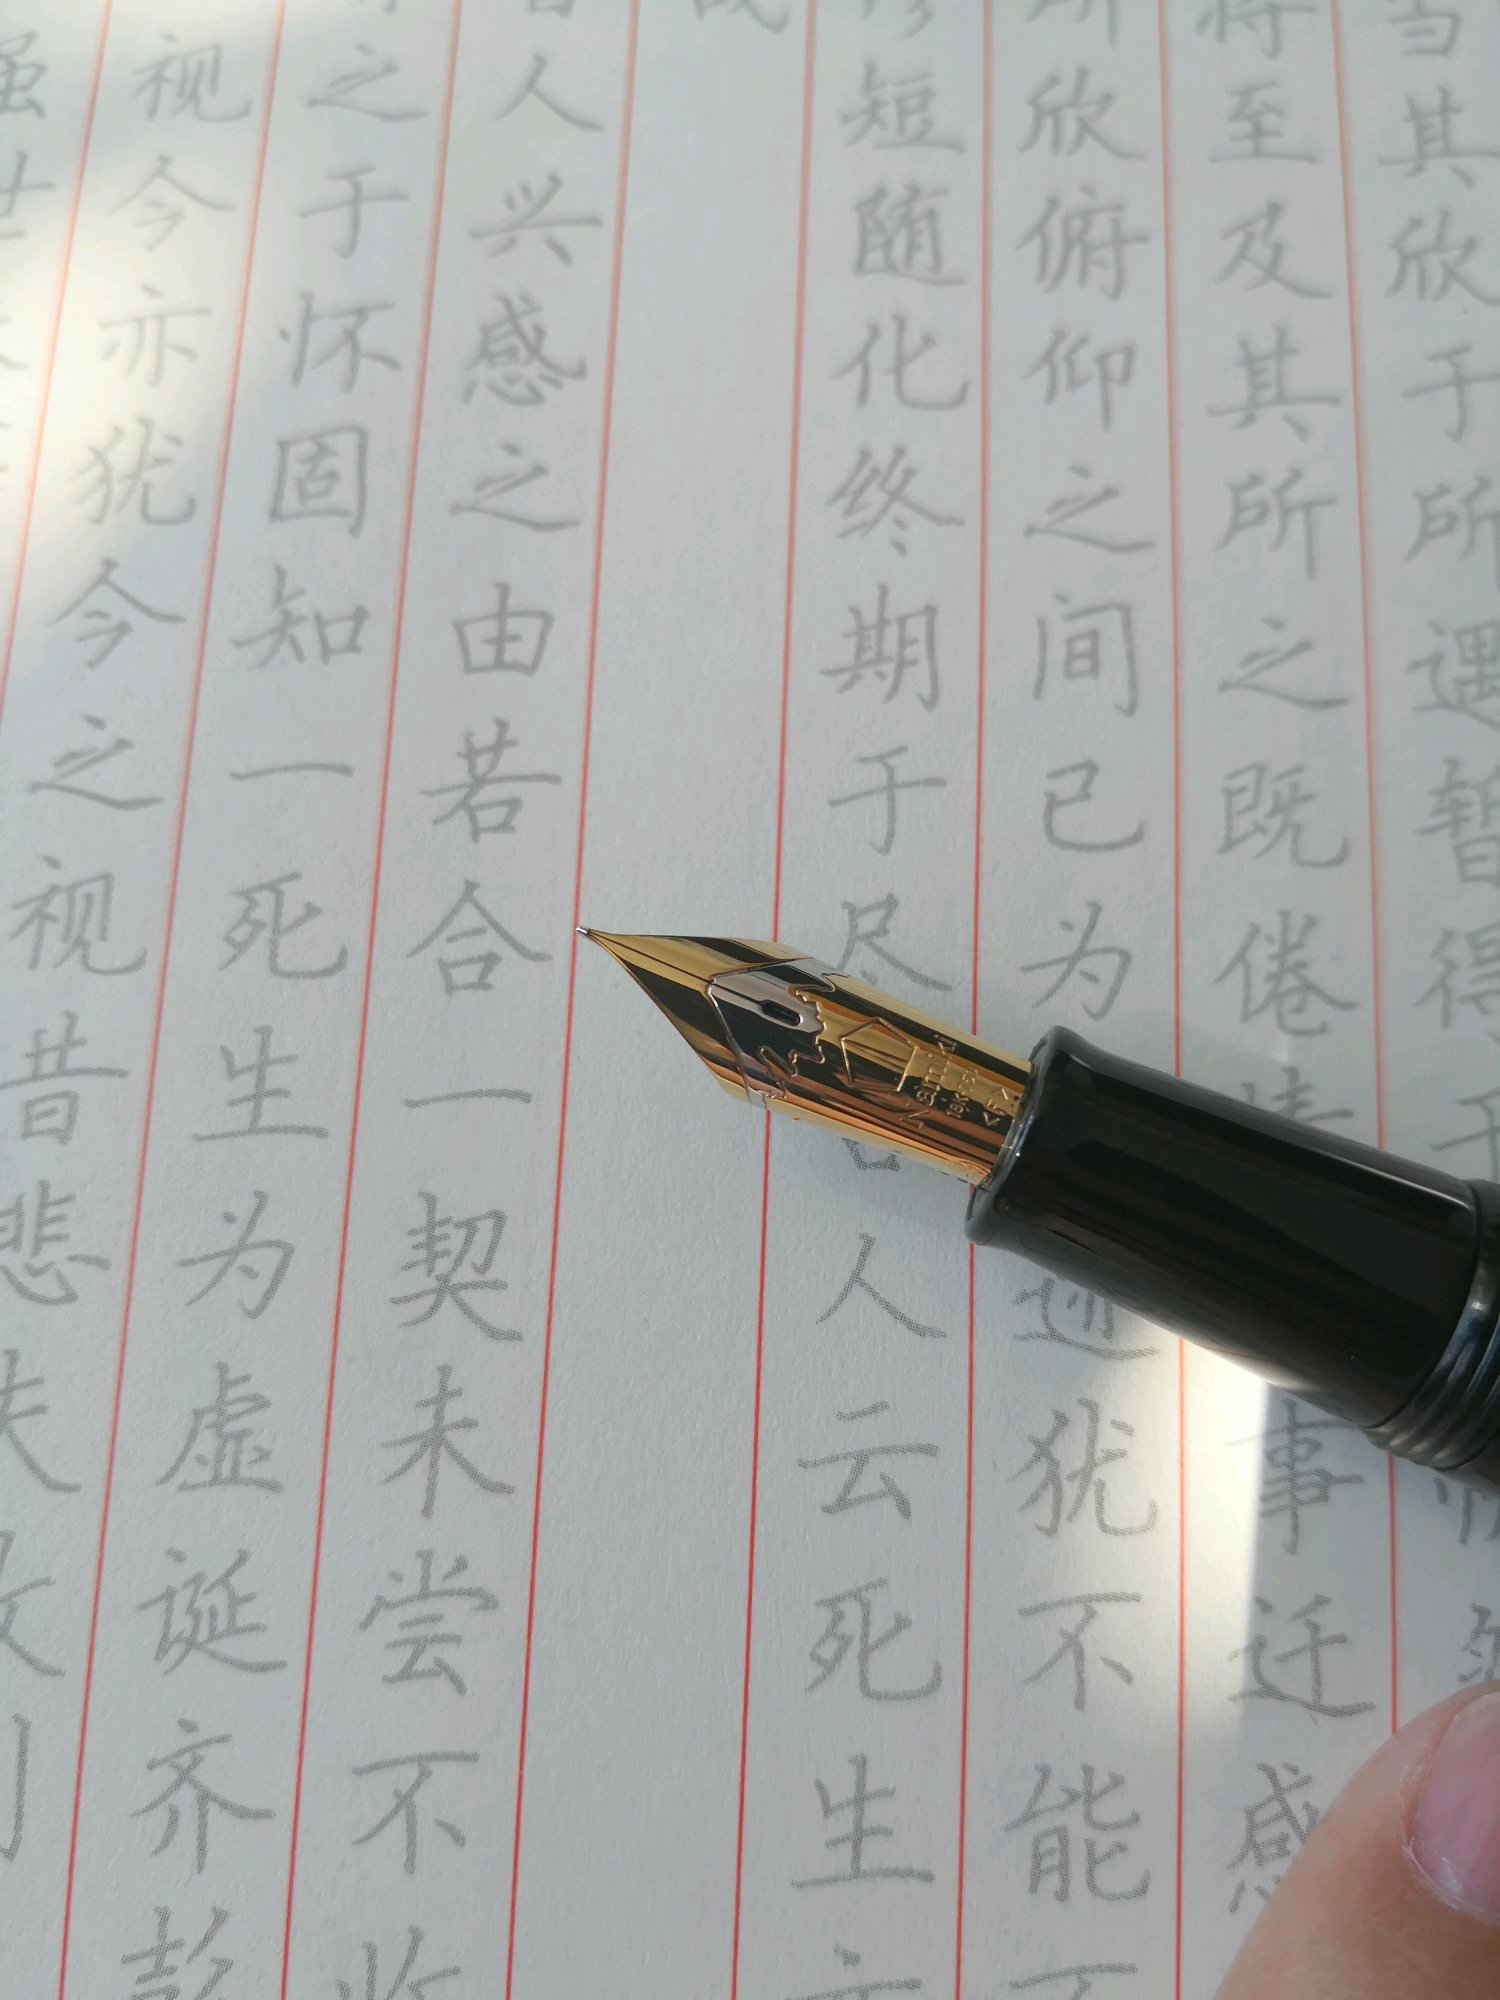 当其欣于所遇暂得于
将至及其所之既倦情事迁感
所欣俯仰之间已为迹犹不能不
修短随化终期于尽人云死生
昔人兴感之由若合一契未尝不临
之于怀固知一死生为虚诞齐彭
视今亦犹今之视昔悲夫故列
世
Namiki
18K-750
<F>